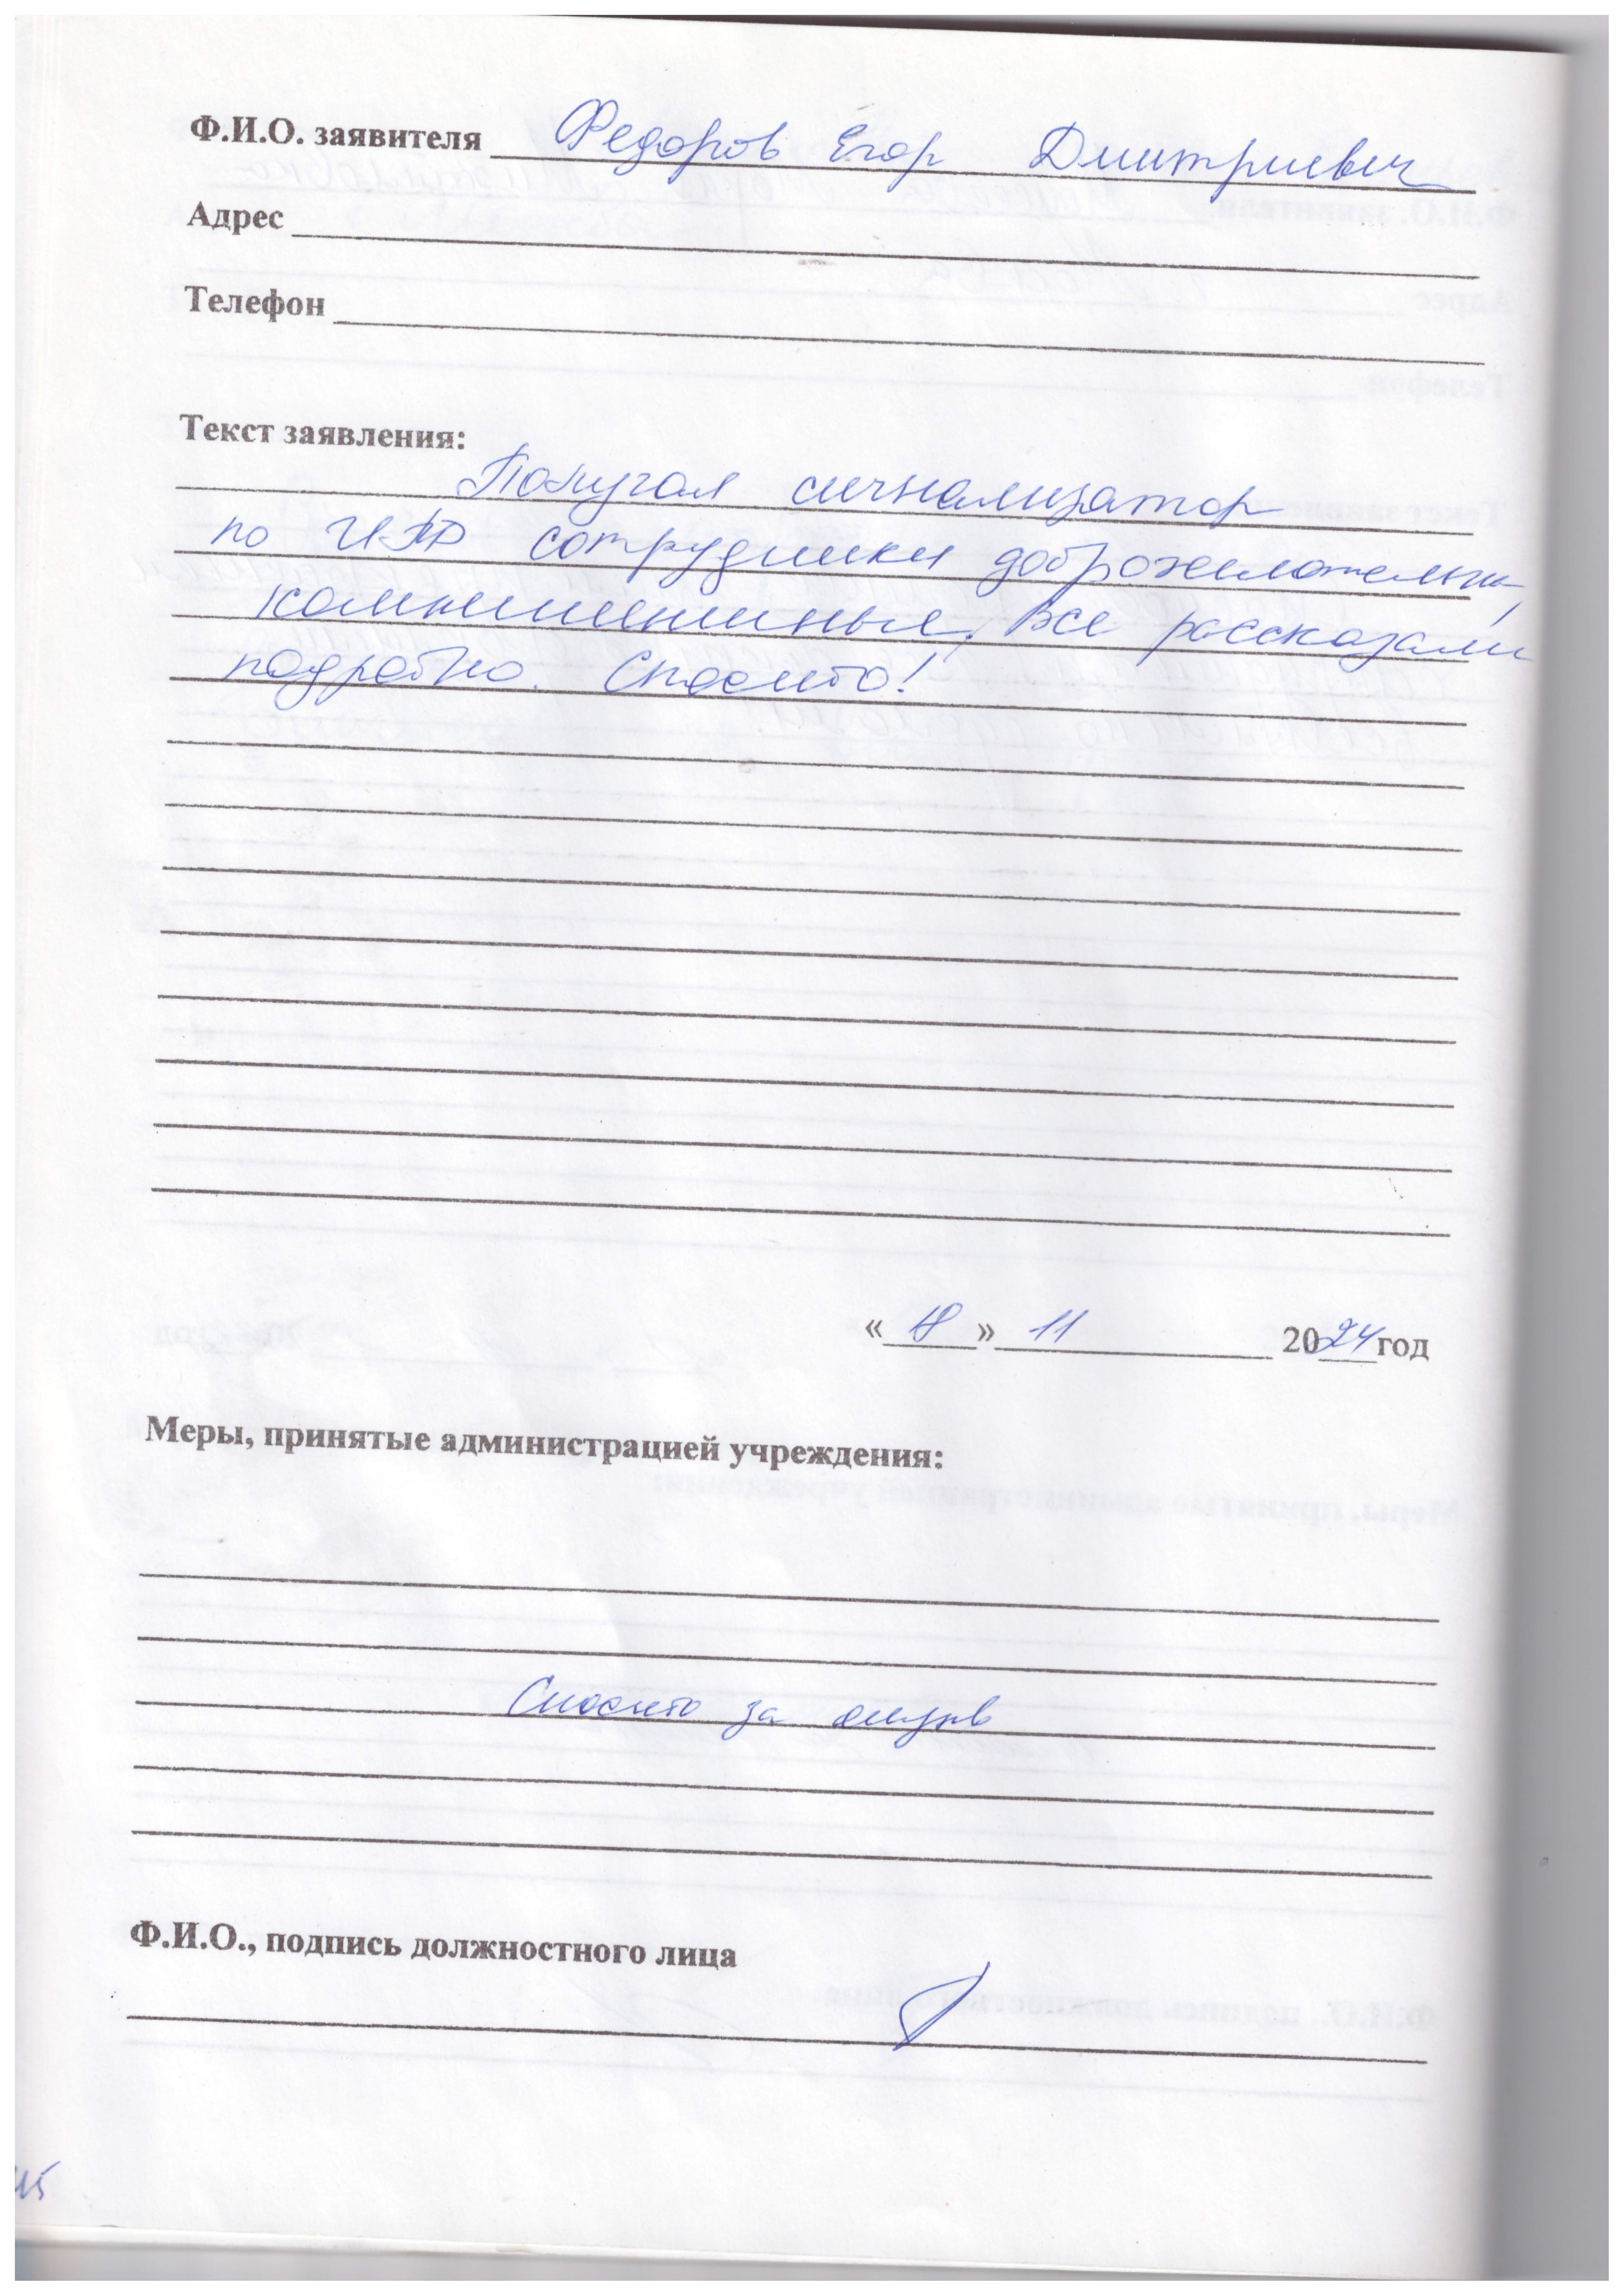 Ф.И.О. заявителя Федоров Егор Дмитриевич
Адрес
Телефон
Текст заявления:
Получал сигнализатор
по ИПР сотрудники доброжелательные,
компетентные, все рассказали
подробно. Спасибо!
« 18 » 11 2024 год
Меры, принятые администрацией учреждения:
Спасибо за отзыв
Ф.И.О., подпись должностного лица